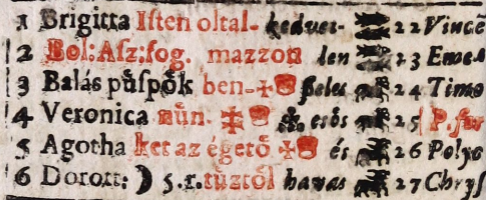 1 Brigitta Iſten oltal- kedvet- 22 Vincē
2 Bol: Aſz: fog. mazzon len 23 Eme
3 Balás püſpök ben- ✠ ſzeles 24 Timo
4 Veronica nün. ✠ esös 25 P. for
5 Agotha ket az égetö ✠ és 26 Polyc
6 Dorott: ☽ 5.r. tüztöl havas 27 Chryſ